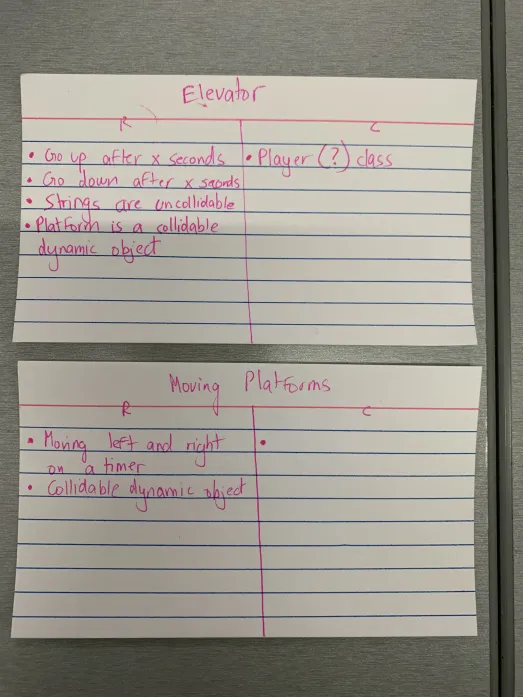 Elevator
R C
• Go up after x seconds • Player (?) class
• Go down after x seconds
• Strings are uncollidable
• Platform is a collidable
dynamic object
Moving Platforms
R C
• Moving left and right •
on a timer
• Collidable dynamic object